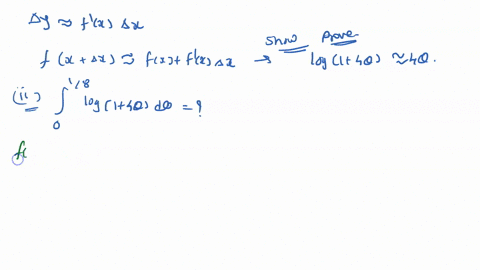 Δy ≈ f'(x) Δx
f (x + Δx) ≈ f(x) + f'(x) Δx → show prove log(1+4θ) ≈ 4θ.
(ii) ∫₀^{1/8} log(1+4θ) dθ = ?
f(